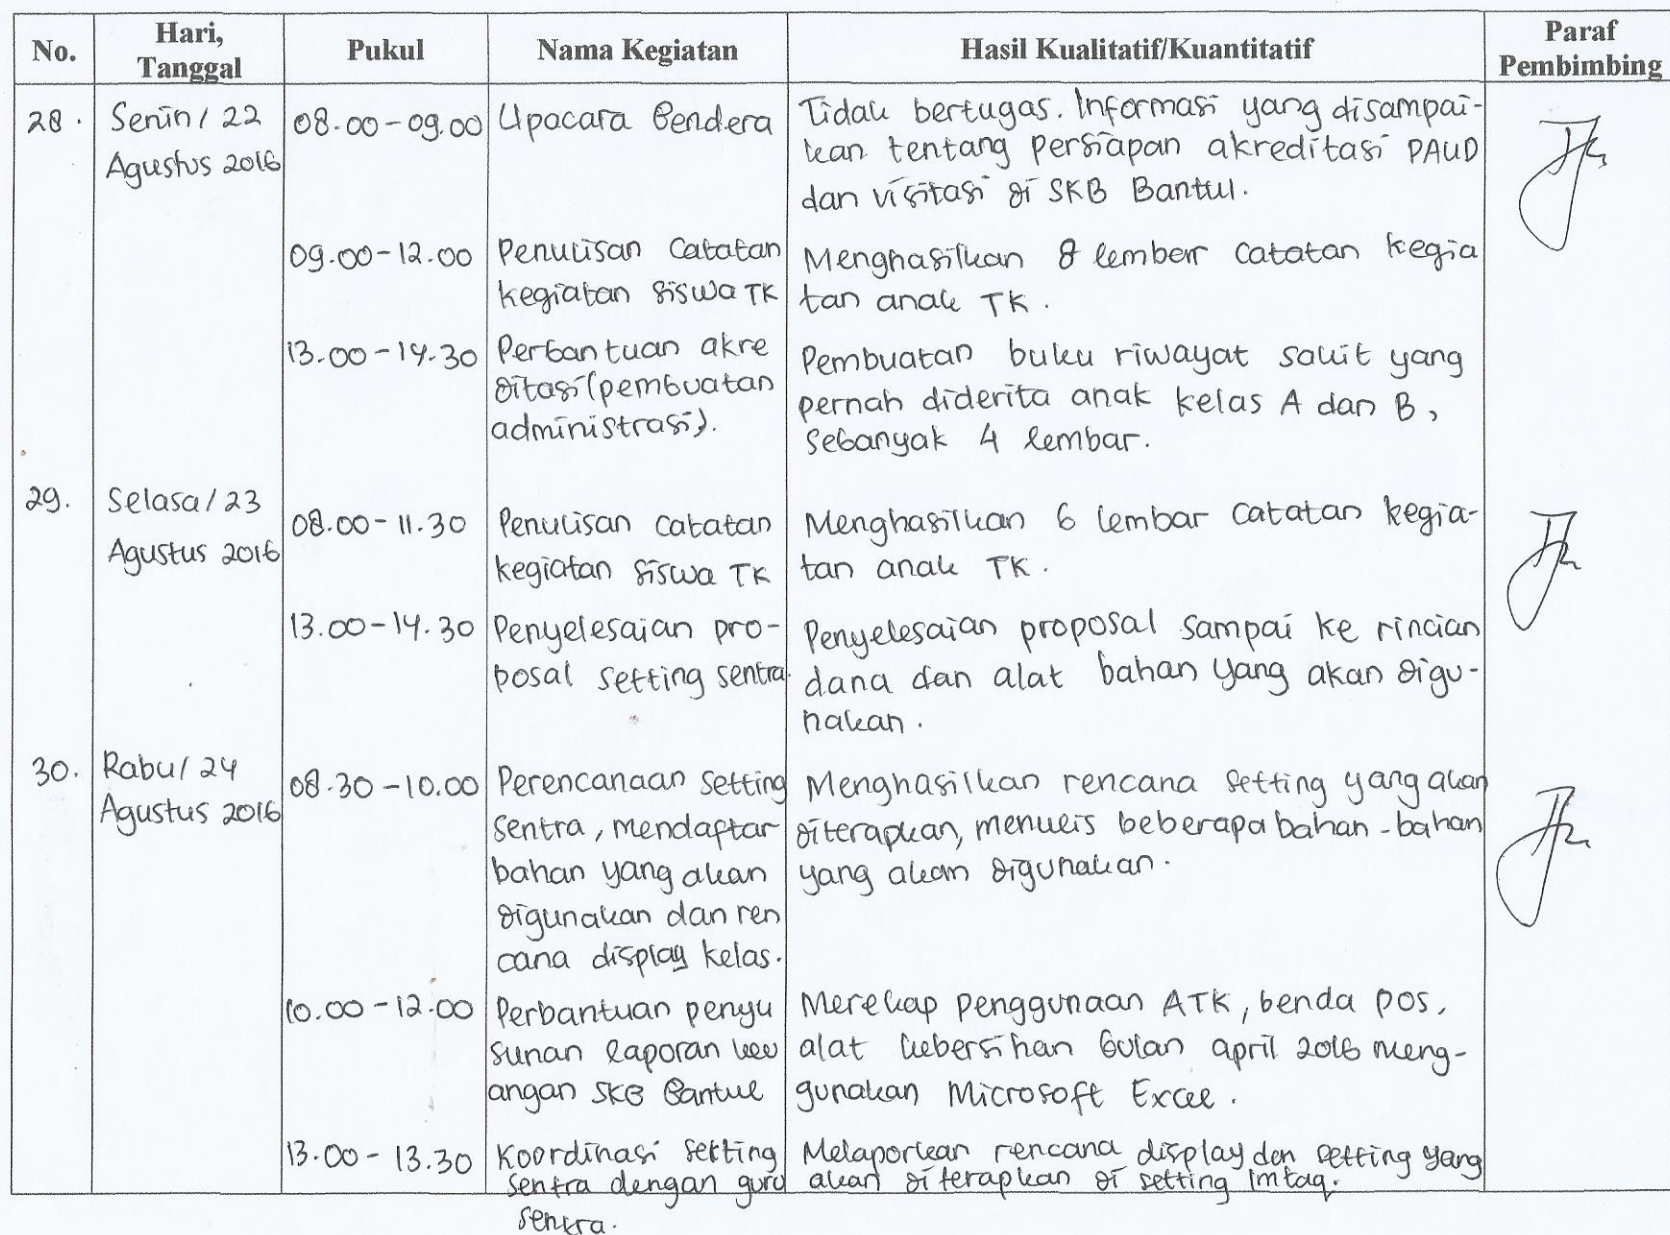 No. Hari, Tanggal Pukul Nama Kegiatan Hasil Kualitatif/Kuantitatif Paraf Pembimbing
28. Senin / 22 Agustus 2016
08.00 - 09.00
Upacara Bendera
Tidak bertugas. Informasi yang disampai-
kan tentang persiapan akreditasi PAUD
dan visitasi di SKB Bantul.
09.00 - 12.00
Penulisan catatan
kegiatan siswa TK
Menghasilkan 8 lembar catatan kegia
tan anak TK.
13.00 - 14.30
Perbantuan akre
ditasi (pembuatan
administrasi).
Pembuatan buku riwayat sakit yang
pernah diderita anak kelas A dan B,
sebanyak 4 lembar.
29. Selasa / 23
Agustus 2016
08.00 - 11.30
Penulisan catatan
kegiatan siswa TK
Menghasilkan 6 lembar catatan kegia-
tan anak TK.
13.00 - 14.30
Penyelesaian pro-
posal setting sentra.
Penyelesaian proposal sampai ke rincian
dana dan alat bahan yang akan digu-
nakan.
30. Rabu / 24
Agustus 2016
08.30 - 10.00
Perencanaan setting
sentra, mendaftar
bahan yang akan
digunakan dan ren
cana display kelas.
Menghasilkan rencana setting yang akan
diterapkan, menulis beberapa bahan - bahan
yang akan digunakan.
10.00 - 12.00
Perbantuan penyu
sunan laporan keu
angan SKB Bantul
Merekap penggunaan ATK, benda pos,
alat kebersihan bulan april 2016 meng-
gunakan Microsoft Excel.
13.00 - 13.30
Koordinasi setting
sentra dengan guru
sentra.
Melaporkan rencana display dan setting yang
akan diterapkan di setting Imtaq.